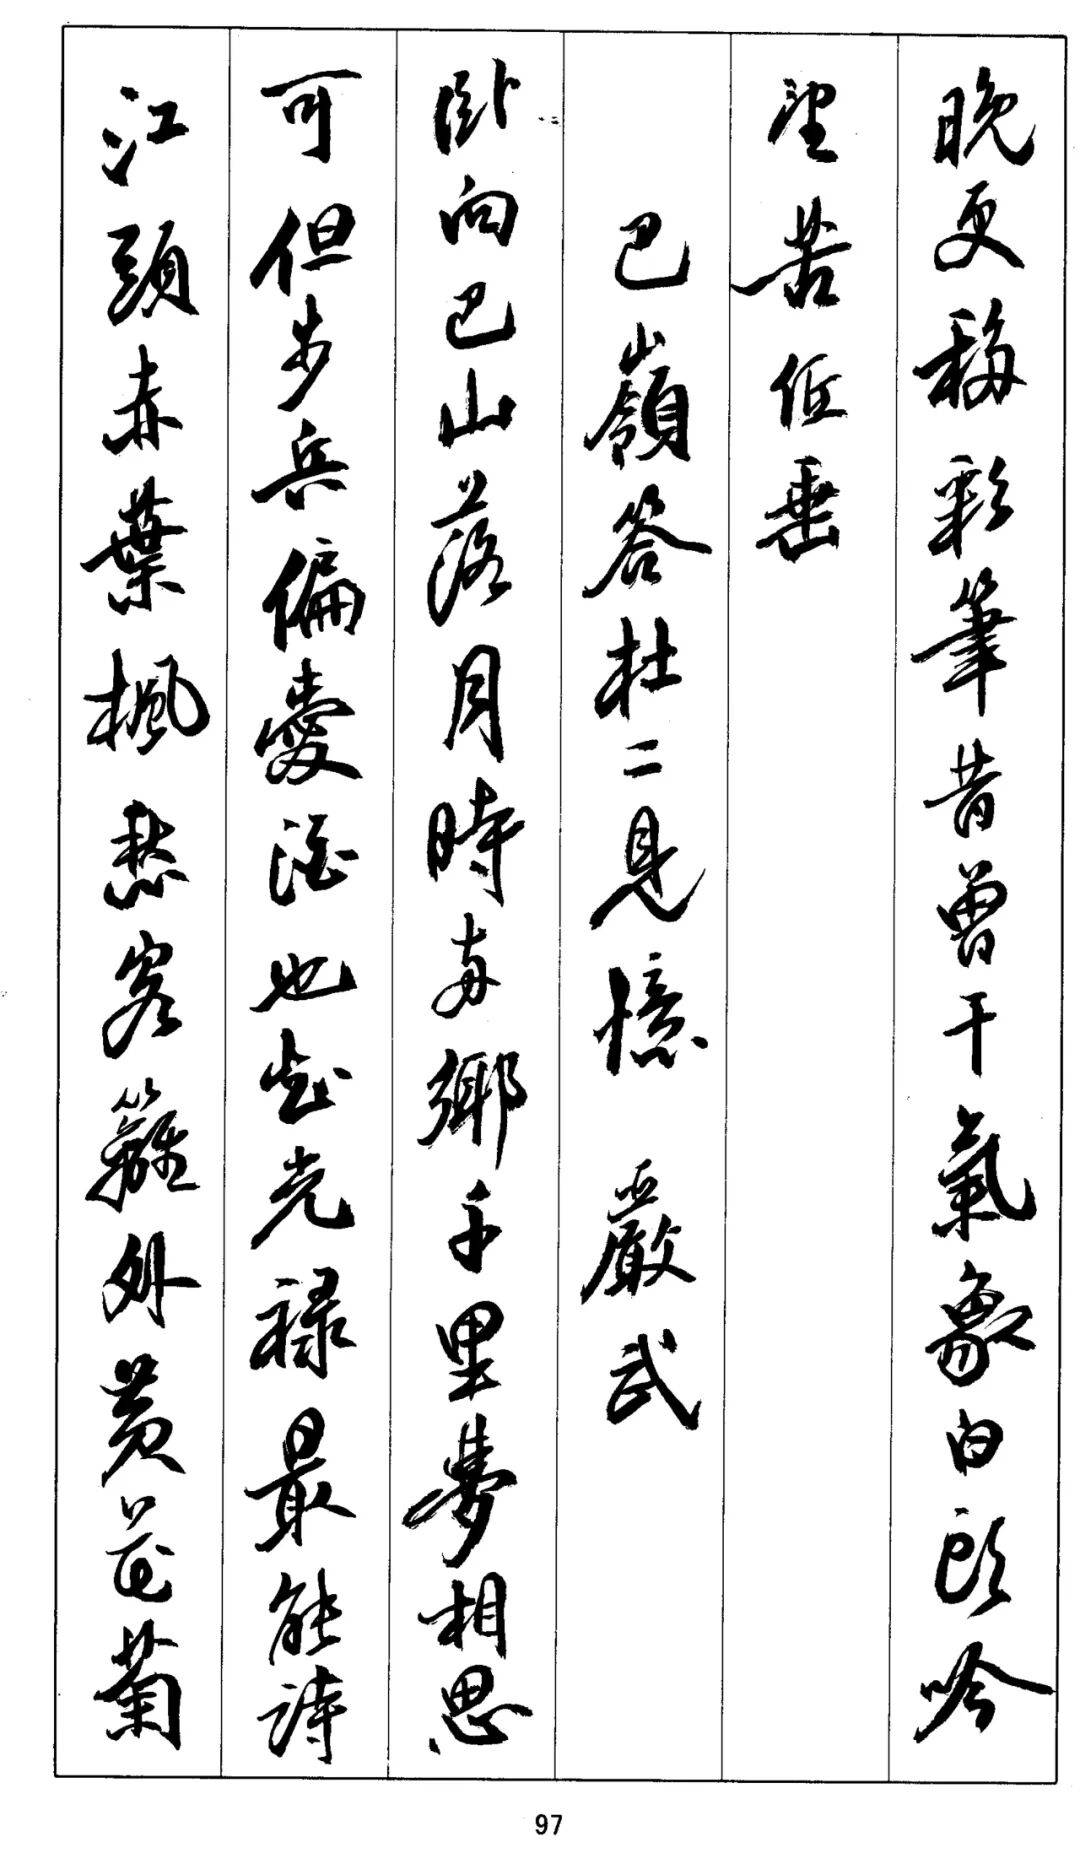 晚更移彩筆昔曾干氣象白頭吟
望苦低垂
巴嶺答杜二見憶 嚴武
臥向巴山落月時兩鄉千里夢相思
可但步兵偏愛酒也知光祿最能詩
江頭赤葉楓愁客籬外黃花菊
97